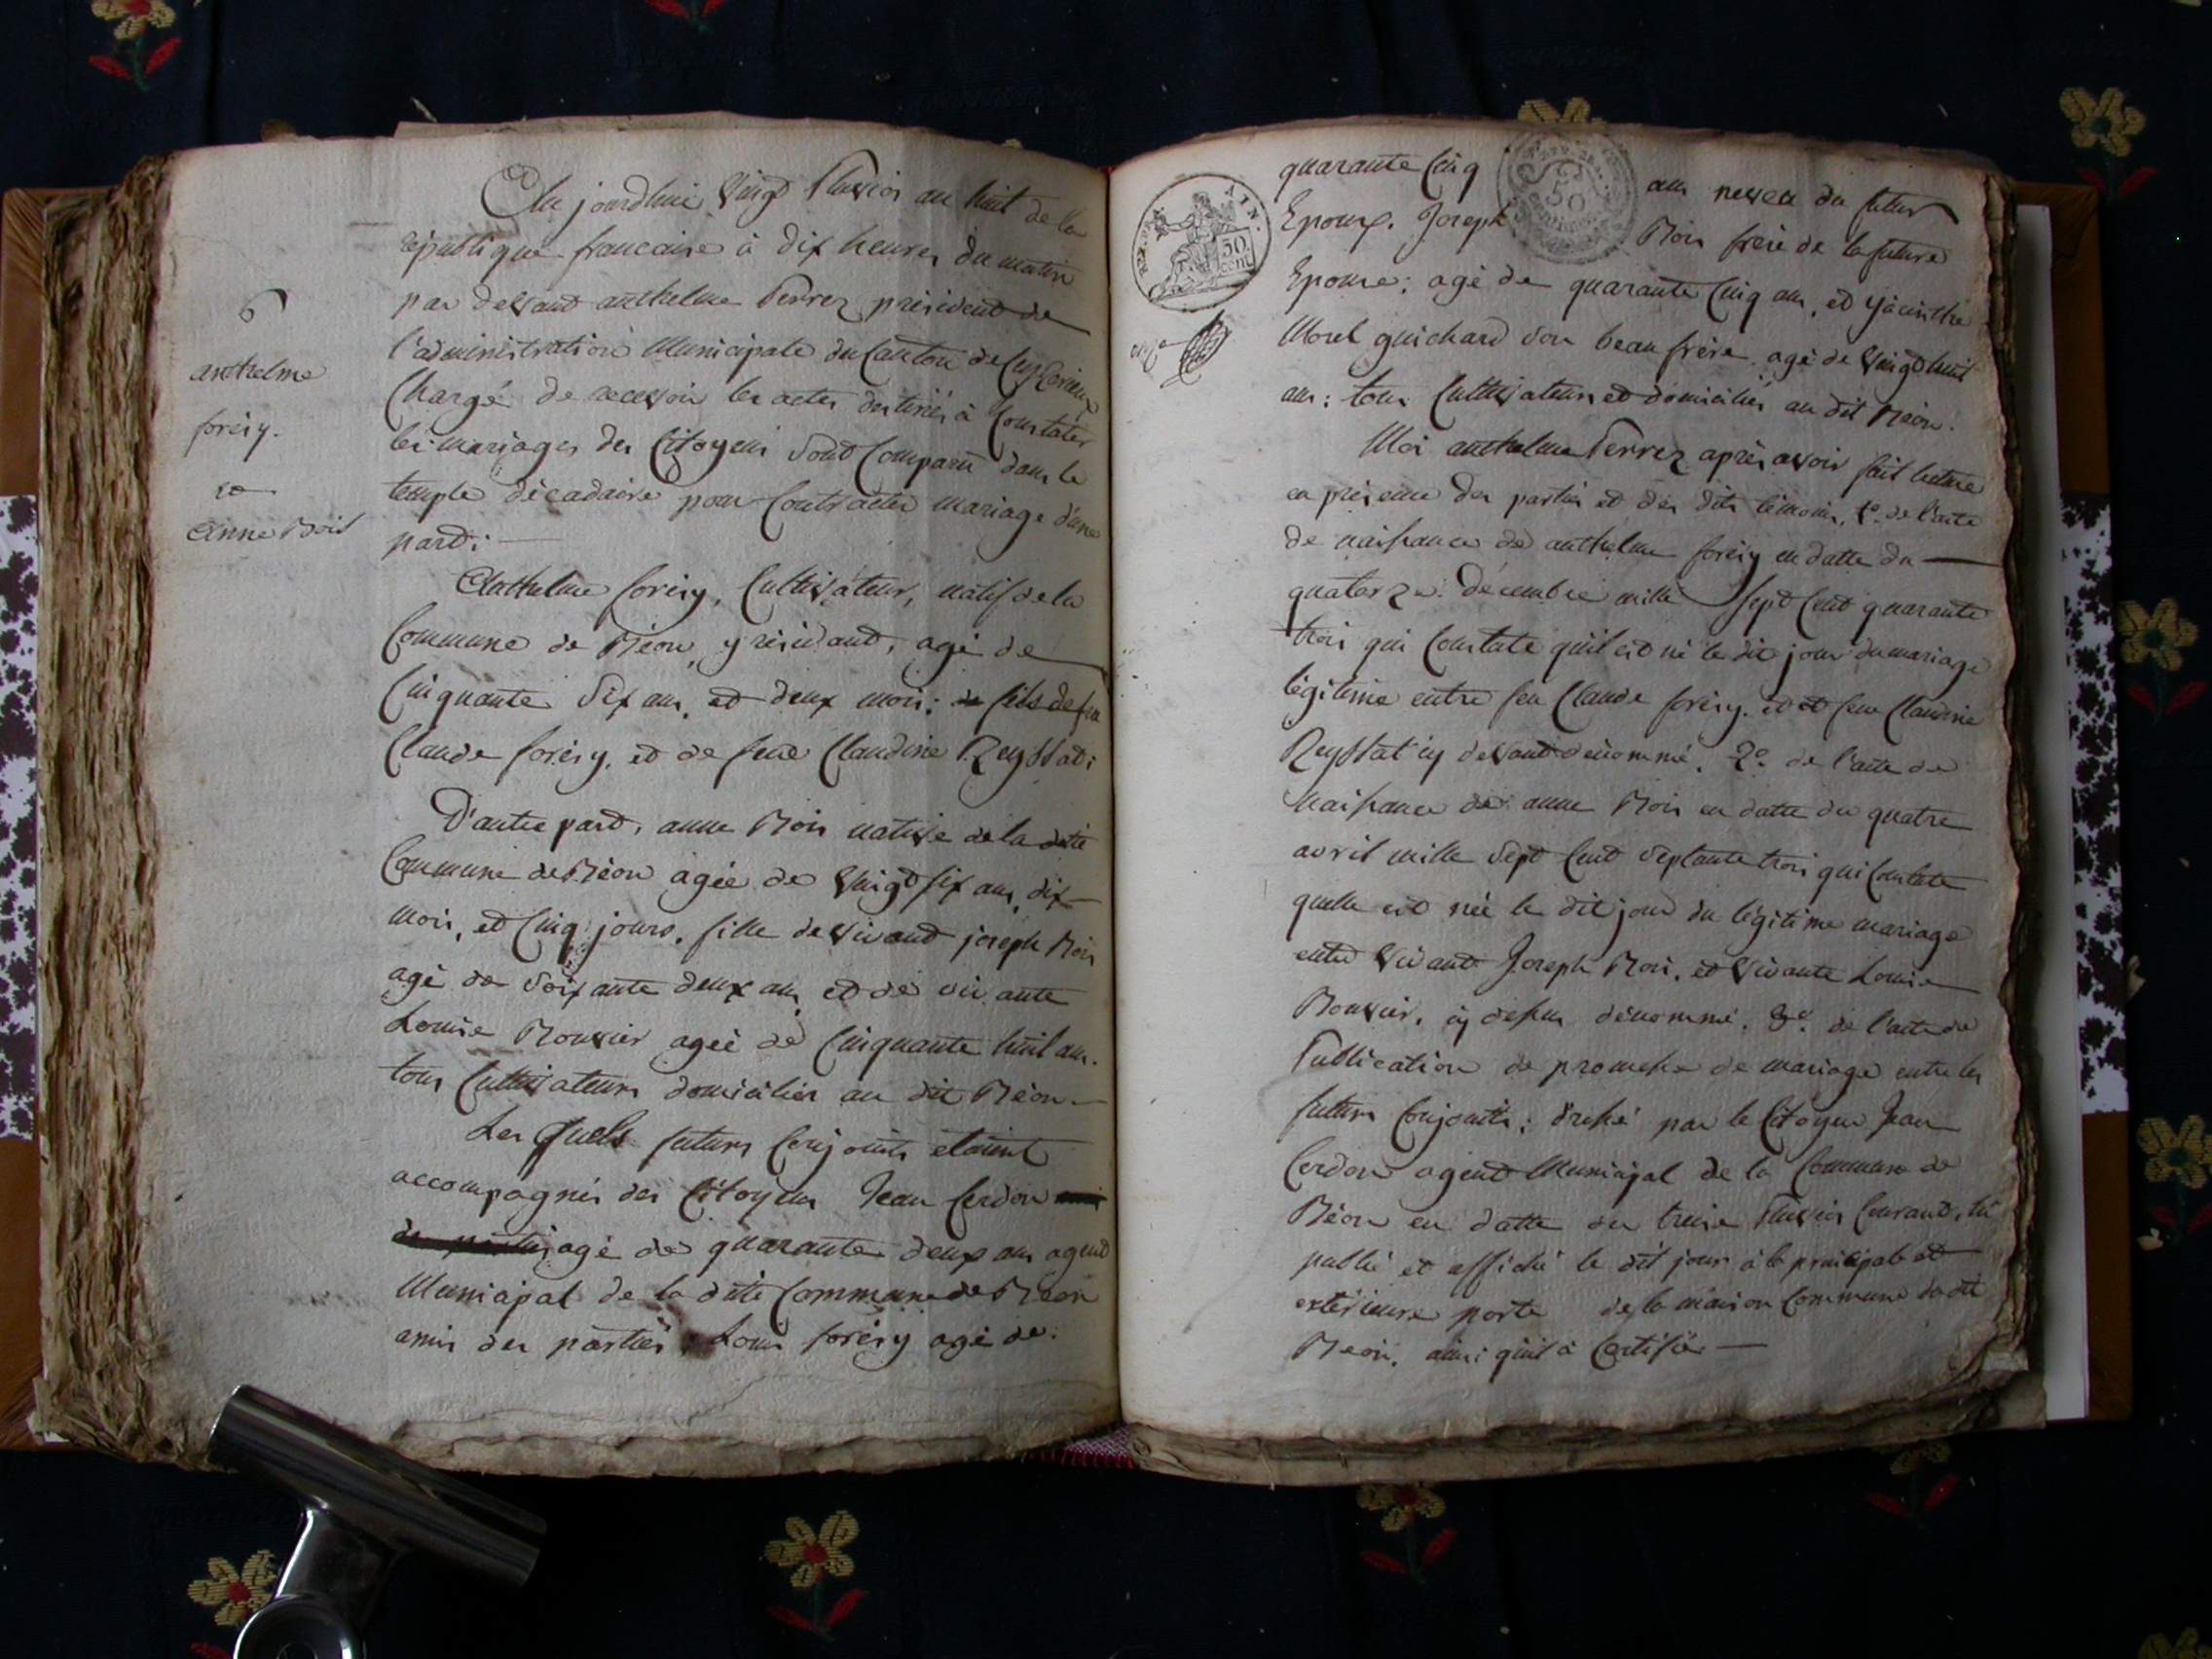 Au jourdhui Vingt Pluviôs an huit de la
république francaise à dix heures du matin
par devant anthelme Perrez président de
l'administration Municipale du Canton de Ceyzerieux
Chargé de recevoir les actes destinés à Constater
les mariages des Citoyens Sont Comparu dans le
temple décadaire pour Contracter mariage d'une
part:
6
anthelme
foreiy.
et
Anne Bois
Anthelme foreiy, Cultivateur, natif de la
Commune de Béon, y résidant, agé de
Cinquante Six ans, et deux mois; fils de feu
Claude foreiy, et de feue Claudine Reyssat;
D'autre part, anne Bois native de la dite
Commune de Béon agée de Vingt six ans, dix
mois, et Cinq jours, fille de vivant joseph Bois
agé de Soixante deux ans et de vivante
Louise Bouvier agée de Cinquante huit ans.
tous Cultivateurs domiciliés au dit Béon
Les quels futurs Conjoints étoient
accompagnés des Citoyens Jean Cerdon
agé de quarante deux ans agent
Municipal de la dite Commune de Béon
amis des parties, Louis foreiy agé de:
quarante Cinq ans neveu du futur
Epoux. Joseph Bois frere de la future
Epouse; agé de quarante Cinq ans, et yacinthe
Morel guichard son beau frère agé de Vingt huit
ans: tous Cultivateurs et domiciliés au dit Béon.
Moi anthelme Perrez après avoir fait lecture
en présence des parties et des dits témoins, 1º. de l'acte
de naissance de anthelme foreiy en datte du
quatorze Décembre mille Sept Cent quarante
trois qui Constate qu'il est né le dit jour du mariage
légitime entre feu Claude foreiy, et feue Claudine
Reyssat cy devant dénommé. 2º. de l'acte de
Naissance de anne Bois en datte du quatre
avril mille Sept Cent Septante trois qui Constate
quelle est née le dit jour du légitime mariage
entre Vivant Joseph Bois, et Vivante Louise
Bouvier, cy dessus dénommé. 3º. de l'acte de
Publication de promesse de mariage entre les
futurs Conjoints; dressé par le Citoyen Jean
Cerdon agent Municipal de la Commune de
Béon en datte du treize Pluviôs Courant, lu
publié et affiché le dit jour à la principale et
extérieure porte de la maison Commune du dit
Béon, ainsi qu'il à Certifié
REP. FRA.
50
cent.
50
centimes